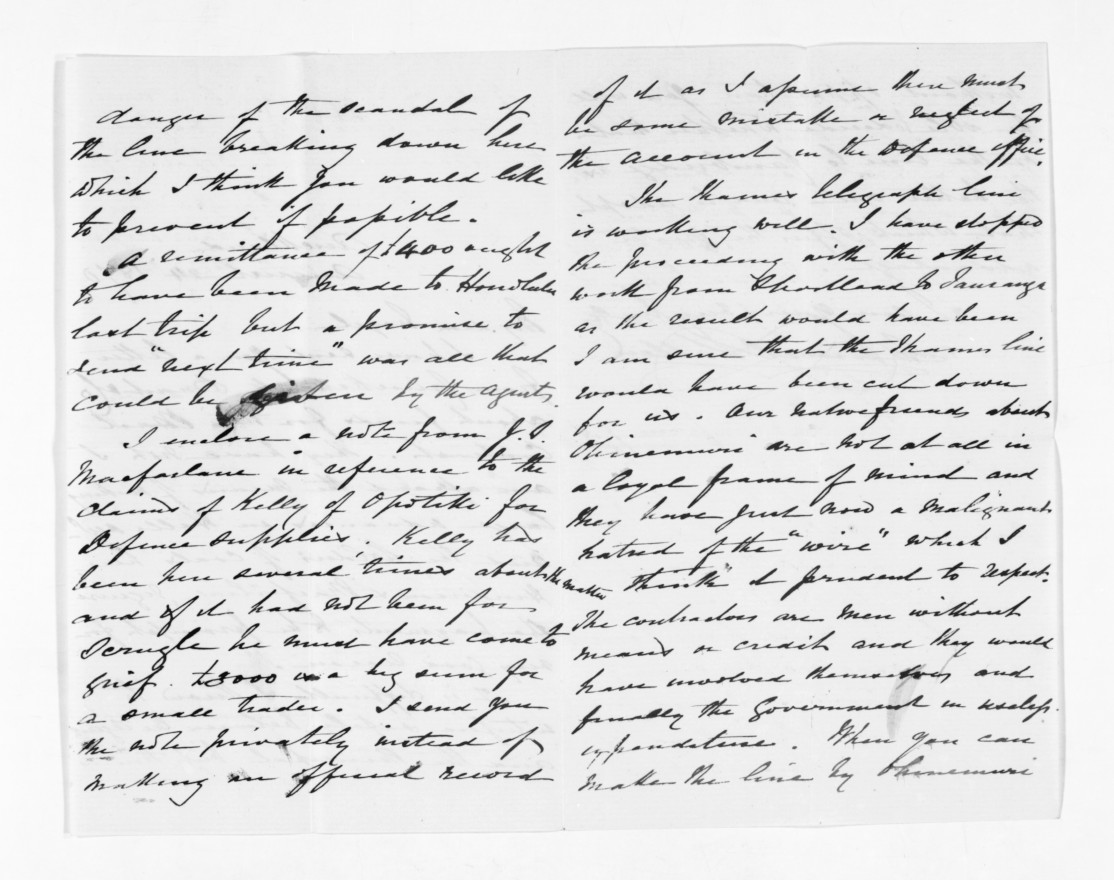 danger of the scandal of
the line breaking down here
which I think you would like
to prevent if possible.
A remittance of £400 ought
to have been made to Honolulu
last trip but a promise to
send "next time" was all that
could be given by the Agents.
I enclose a note from J. S.
Macfarlane in reference to the
claims of Kelly of Opotiki for
Defence supplies. Kelly has
been here several times about the matter
and if it had not been for
he must have come to
grief. £3000 is a big sum for
a small trader. I send you
the note privately instead of
making an official record
of it as I assume there must
be some mistake or neglect of
the account in the Defence office.
The Thames telegraph line
is working well. I have stopped
the proceeding with the other
work from Shortland to Tauranga
as the result would have been
I am sure that the Thames line
would have been cut down
for us. Our native friends about
Ohinemuri are not at all in
a loyal frame of mind and
they have just now a malignant
hatred of the "wire" which I
think it prudent to respect.
The contractors are men without
means or credit and they would
have involved themselves and
finally the Government in useless
expenditure. When you can
make the line by Ohinemuri